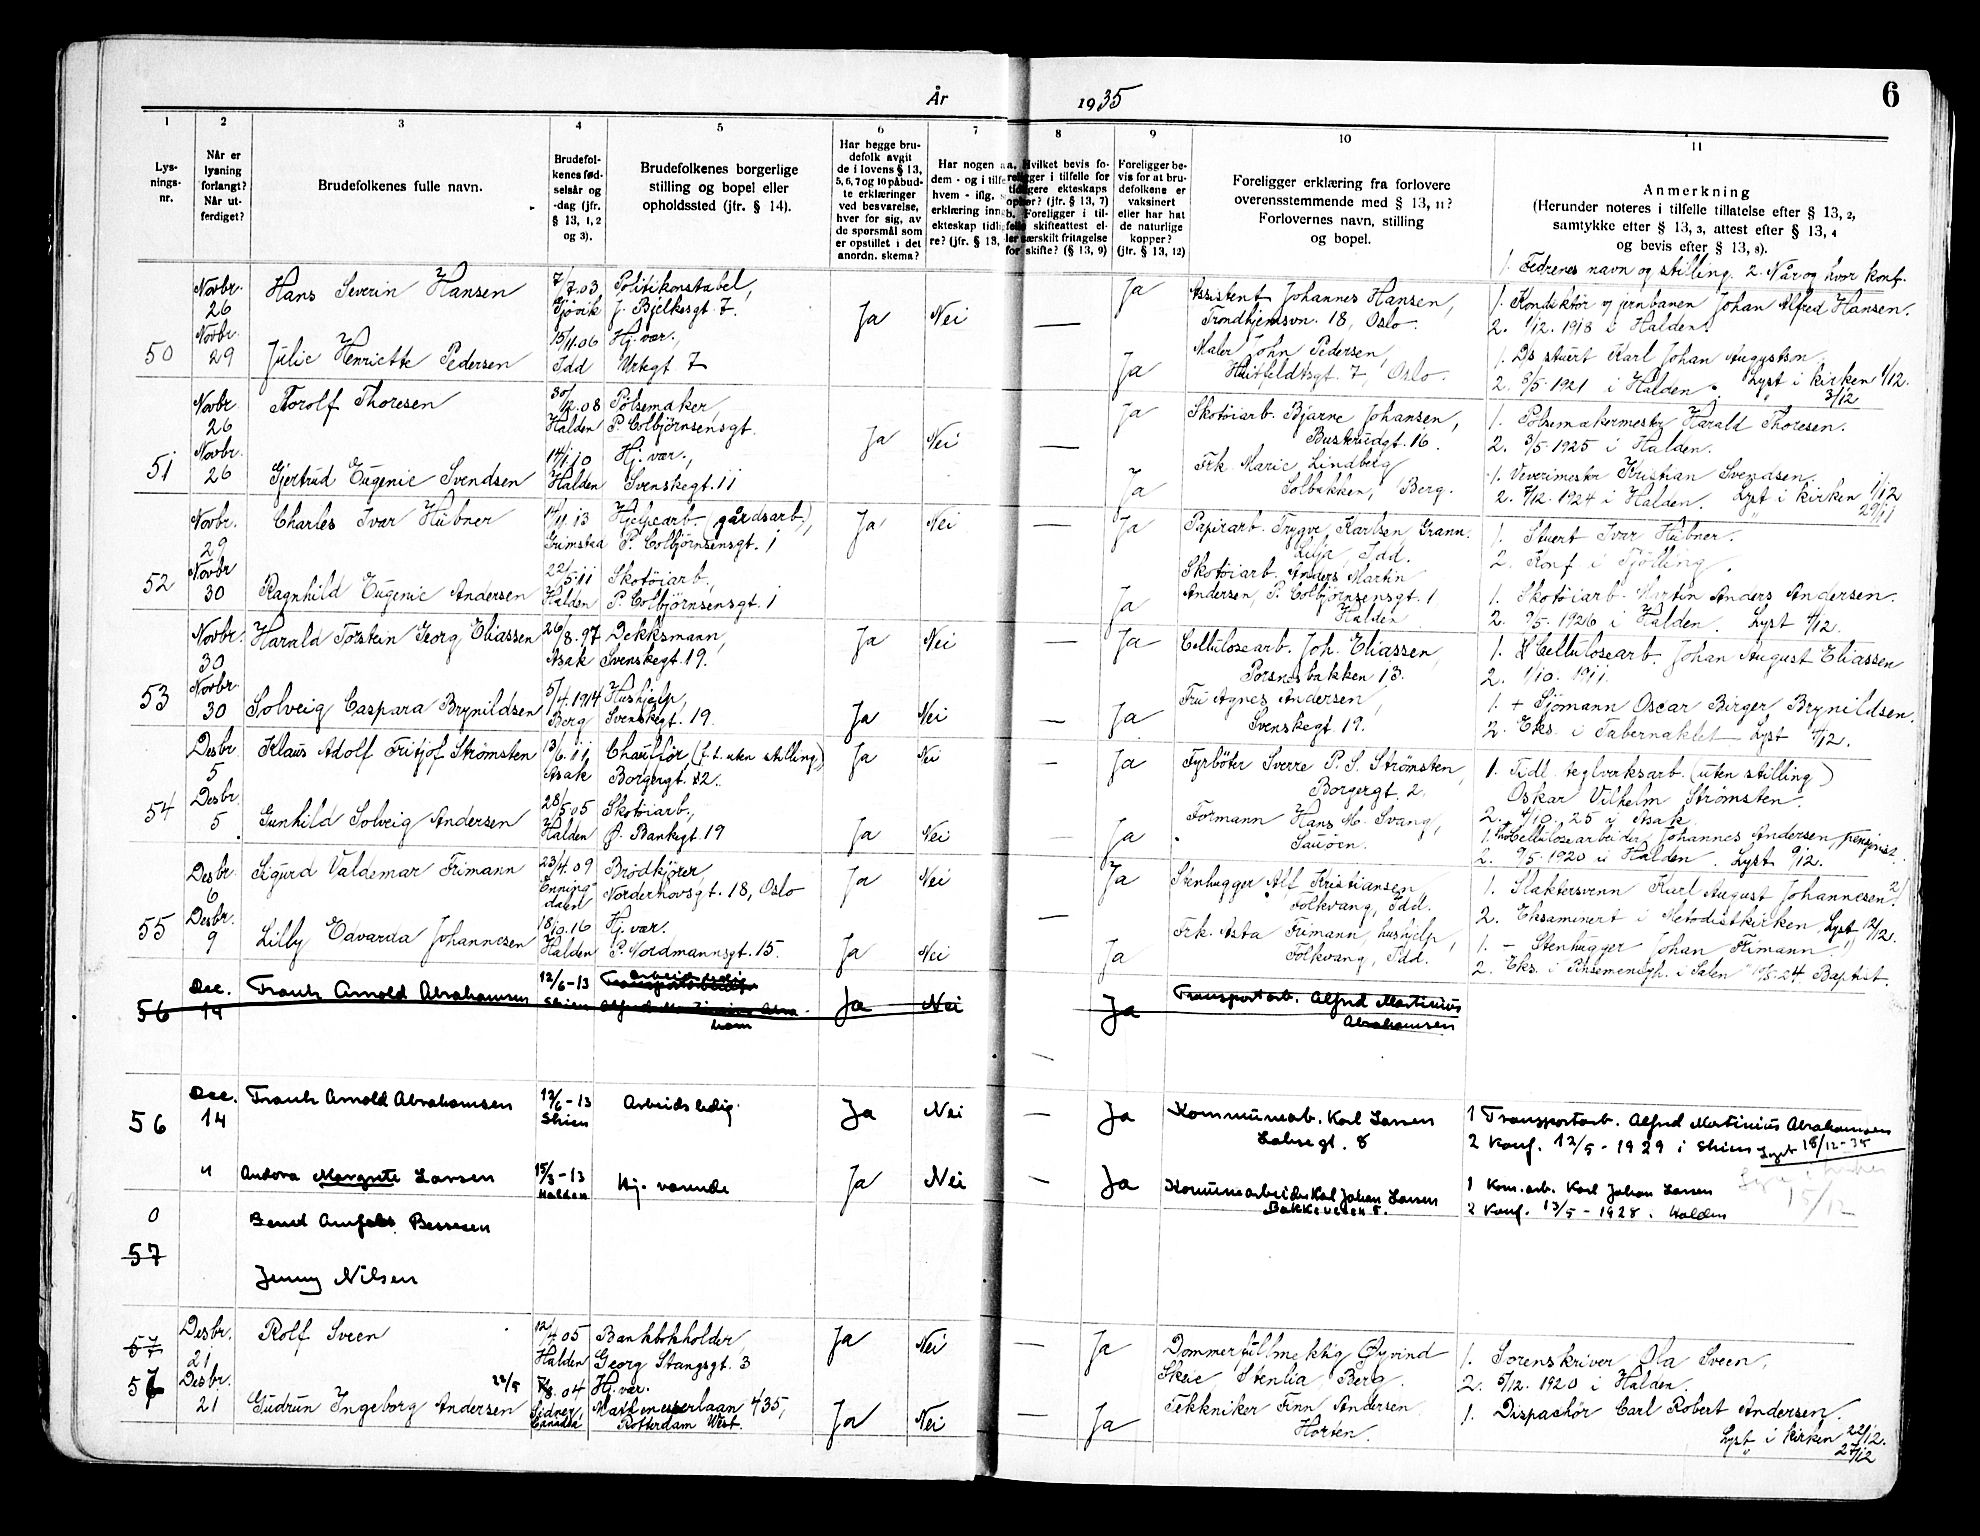 År 1935
6
1 2 3 4 5 6 7 8 9 10 11
Lys-
nings-
nr.
Når er
lysning
forlangt?
Når ut-
ferdiget?
Brudefolkenes fulle navn.
Brudefol-
kenes fød-
selsår og
-dag (jfr.
§ 13, 1, 2
og 3).
Brudefolkenes borgerlige
stilling og bopel eller
opholdssted (jfr. § 14).
Har begge bru-
defolk avgit
de i lovens § 13,
5, 6, 7 og 10 påbud-
te erklæringer
ved besvarelse,
hver for sig, av
de spørsmål som
er opstillet i det
anordn. skema?
Har nogen
dem - og i tilfe
hvem - iflg. s
erklæring inng
ekteskap tidli
re? (jfr. § 13,
a. Hvilket bevis fo-
religger i tilfelle for
tidligere ekteskaps
ophør? (jfr. § 13, 7)
b. Foreligger i til-
felle skifteattest el-
ler særskilt fritagelse
for skifte? (§ 13, 9)
Foreligger be-
vis for at bru-
defolkene er
vaksinert
eller har hat
de naturlige
kopper?
(jfr. § 13, 12)
Foreligger erklæring fra forlovere
overensstemmende med § 13, 11?
Forlovernes navn, stilling
og bopel.
Anmerkning
(Herunder noteres i tilfelle tillatelse efter § 13, 2,
samtykke efter § 13, 3, attest efter § 13, 4
og bevis efter § 13, 8).
1. Fedrenes navn og stilling. 2. Når og hvor konf.
Novbr. 26 Hans Severin Hansen 7/7.03 Gjøvik Politikonstabel, J. Bjelkesgt. 7. Ja Nei — Ja Assistent Johannes Hansen, Trondhjemsvn. 18, Oslo. 1. Konduktør v/ jernbanen Johan Alfred Hansen.
2. 1/12. 1918 i Halden.
50 Novbr. 29 Julie Henriette Pedersen 15/11.06 Idd Hj. vær. Urtegt. 7 Ja Maler John Pedersen, Huitfeldtsgt. 7, Oslo. 1. Ds stuert Karl Johan Augustson.
2. 5/5 1921 i Halden. Lyst i kirken 1/12.
3/12
Novbr. 26 Torolf Thoresen 30/12.08 Halden Pølsemaker, P. Colbjørnsensgt. Ja Nei — Ja Skotøiarb. Bjarne Johansen, Buskrudgt. 16. 1. Pølsemakermester Harald Thoresen.
2. 3/5 1925 i Halden.
51 Novbr. 26 Gjertrud Eugenie Svendsen 14/1.10 Halden Hj. vær., Svenskegt. 11 Ja Frk. Marie Lindberg Solbakken, Berg. 1. Vevermester Kristian Svendsen.
2. 7/12. 1924 i Halden. Lyst i kirken 1/12
29/11
Novbr. 29 Charles Ivar Hübner 14/11.13 Grimstad Hjelpearb. (gårdsarb.), P. Colbjørnsensgt. 1 Ja Nei — Ja Papirarb. Trygve Karlsen Grann. Lilja, Idd. 1. Stuert Ivar Hübner.
2. Konf i Tjölling.
52 Novbr 30 Ragnhild Eugenie Andersen 22/5.11 Halden Skotøiarb., P. Colbjørnsensgt. 1 Ja Skotøiarb. Anders Martin Andersen, P. Colbjørnsensgt. 1 Halden 1. Skotøiarb. Martin Anders Andersen.
2. 9/5. 1926 i Halden. Lyst 4/12.
Novbr. 30 Harald Torstein Georg Eliassen 26/8.97 Asak Dekksmann, Svenskegt. 19. Ja Nei — Ja Cellulosearb. Joh. Eliassen, Porsnesbakken 13. 1. Cellulosearb. Johan August Eliassen
2. 1/10. 1911.
53 Novbr 30 Solveig Caspara Brynildsen 5/4.1914 Berg Hushjelp, Svenskegt. 19. Ja Nei — Ja Fru Agnes Andersen, Svenskegt 19. 1. + Sjömann Oscar Birger Brynildsen.
2. Eks. i Tabernaklet Lyst 4/12.
Desbr. 5 Klaus Adolf Fritjof Strømsten 13/6.11, Asak Chauffør (f.t. uten stilling), Borgergt. 2. Ja Nei — Ja Fyrbøter Sverre P. S. Strømsten, Borgergt. 2. 1. Tidl. teglverksarb. (uten stilling)
Oskar Vilhelm Strømsten.
2. 4/10. 25 i Asak.
54 Desbr. 5 Gunhild Solveig Andersen 28/5.05 Halden Skotøiarb., Ø. Bankegt. 19 Ja Nei — Ja Formann Hans M. Svang, Sauøen. 1. Cellulosearbeider Johannes Andersen, pensjonist.
2. 9/5. 1920 i Halden. Lyst 9/12.
Desbr. 6 Sigurd Valdemar Frimann 23/4.09 Enningdalen Brødkjører, Norderhovsgt. 18, Oslo Ja Nei — Ja Stenhugger Alf Kristiansen Folkvang, Idd. 1. Slaktersvenn Karl August Johannesen. 2)
2. Eksaminert i Metodistkirken. Lyst 12/12.
55 Desbr. 9 Lilly Edvarda Johannesen 18/10.16 Halden Hj. vær. P. Nordmannsgt. 15. Ja Nei Ja Frk. Asta Frimann, hushjelp, Folkvang, Idd. 1. - Stenhugger Johan Frimann. 1)
2. Eks. i Pinsemenigh. i Salen Baptist.
56 Dec. 14 Frank Arnold Abrahamsen 12/6-13 Skien Arbeidsledig Transportarbeider Alfred Martinius Abraham Ja Nei Ja Transportarb. Alfred Martinius Abrahamsen
—
56 Dec. 14 Frank Arnold Abrahamsen 12/6-13 Skien Arbeidsledig. Ja Nei — Ja Kommunearb. Karl Larsen Labregt. 8 1 Transportarb. Alfred Martinius Abrahamsen
2 Konf. 12/5 - 1929 i Skien Lyst 18/12-35
" Andora Margrete Larsen 15/3-13 Halden Hj. værende Ja Nei — Ja Kommunearbeider Karl Johan Larsen Bakkeveien 8. 1 Kom.arb. Karl Johan Larsen
2 Konf. 13/5 - 1928. Halden
15/12
0
57 Bernt Berresen
Jenny Nilsen
57 Desbr. 21 Rolf Sveen 12/4.05 Halden Bankbokholder, Georg Stangsgt. 3 Ja Nei — Ja Dommerfullmektig Øyvind Skeie Stenlia Berg. 1. Sorenskriver Ola Sveen.
2. 5/12. 1920 i Halden.
57 Desbr. 21 Gudrun Ingeborg Andersen 22/5 04 Canada Hj. vær. Mathenesserlaan 435, Rotterdam West. Ja Nei — Ja Tekkniker Finn Andersen Horten. 1. Dispachør Carl Robert Andersen.
Lyst i kirken 22/12.
27/12